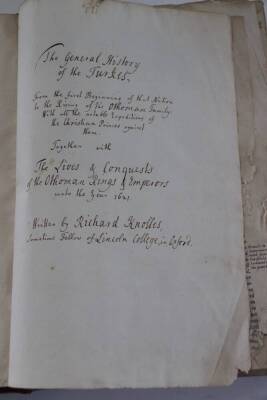 The General History
of the Turkes,
From the first Beginning of that Nation
to the Rising of the Othoman Family:
With all the notable Expeditions of
the Christian Princes against
them.
Together with
The Lives & Conquests
of the Othoman Kings & Emperors
unto the Year 1621.
Written by Richard Knolles,
sometime Fellow of Lincoln College, in Oxford.